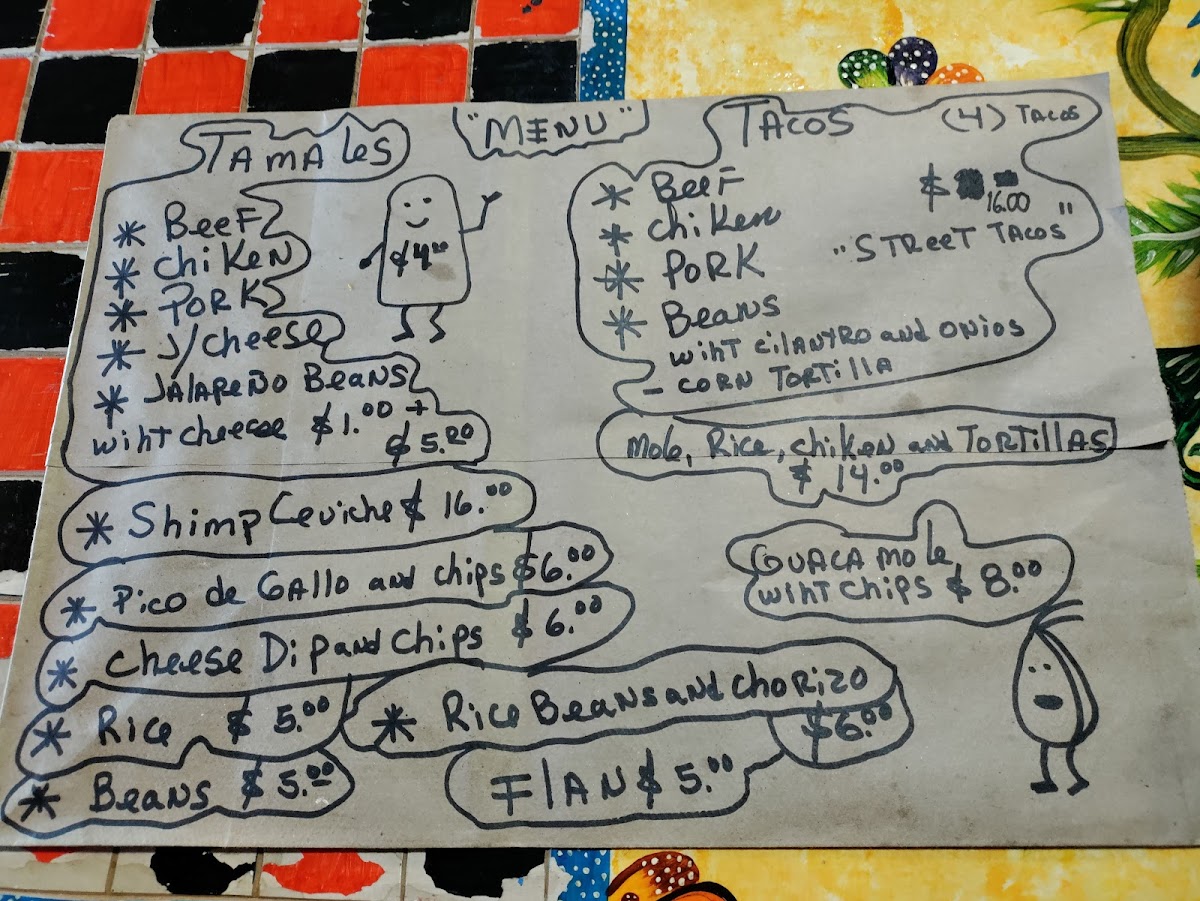 "MENU"
TAMAles
* BeeF
* chiKeN
* PORK
* J/cheese
* JALAPEÑO BEANS
wiht cheecse $1.00 +
$5.00
$4.00
TACOS (4) TACOS
* BeeF
$ 16.00
* chiKeN
"STReeT TACOS"
* PORK
* BeaNS
wiht CilANTRO and ONiOS
- CORN TORTillA
Mole, Rice, chiKen and TORTillAS
$ 14.00
* Shimp Ceviche $ 16.00
* Pico de GAllo and chips $6.00
* cheese Dip and chips $ 6.00
GUACAMOle
wiht chips $ 8.00
* Rice $ 5.00
* Rice Beans and chORizo
$6.00
* BeaNS $ 5.00
FlAN $ 5.00